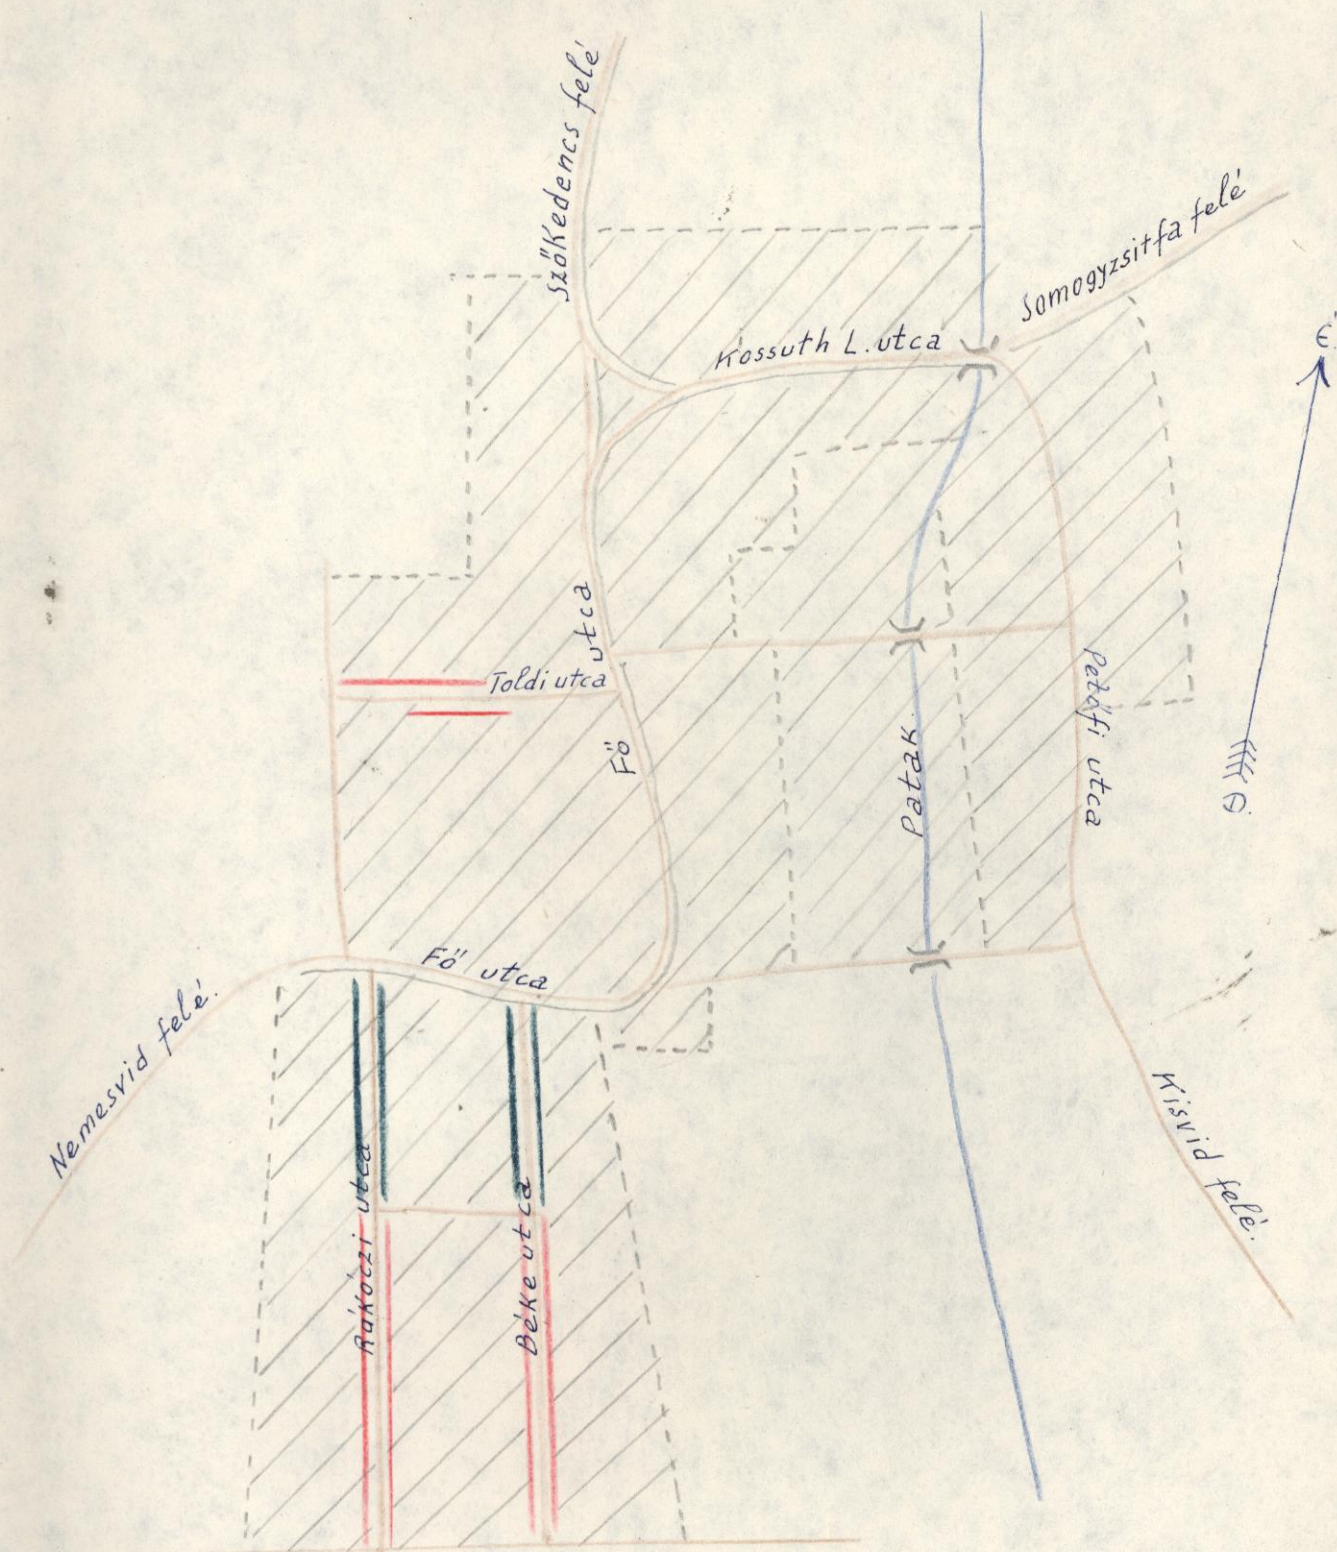 Szőkedencs felé
Somogyzsitfa felé
Kossuth L. utca
É.
utca
Toldi utca
Fő
Petőfi utca
Patak
D.
Fő utca
Nemesvid felé.
Kisvid felé.
Rákóczi utca
Béke utca